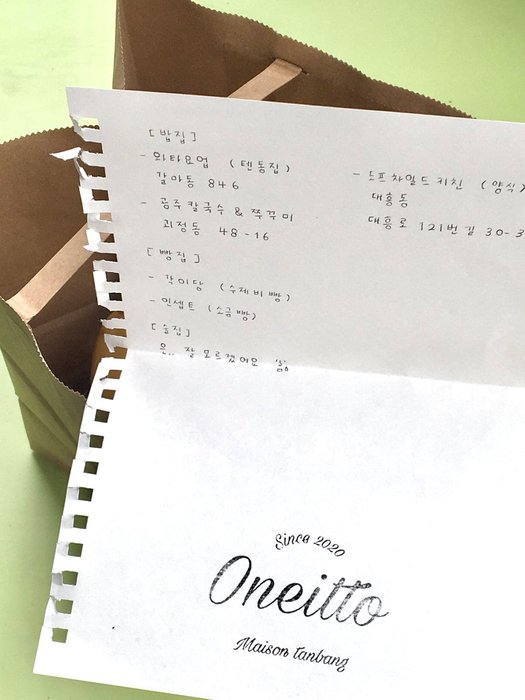 [밥집]
- 와타요업 (텐동집)
갈마동 846
- 공주칼국수 & 쭈꾸미
괴정동 48-16
- 도프차일드키친 (양식)
대흥동
대흥로 121번길 30-3
[빵집]
- 각이당 (수제비빵)
- 인셉트 (소금빵)
[술집]
은.. 잘 모르겠어요
Since 2020
Oneitto
Maison tanbang